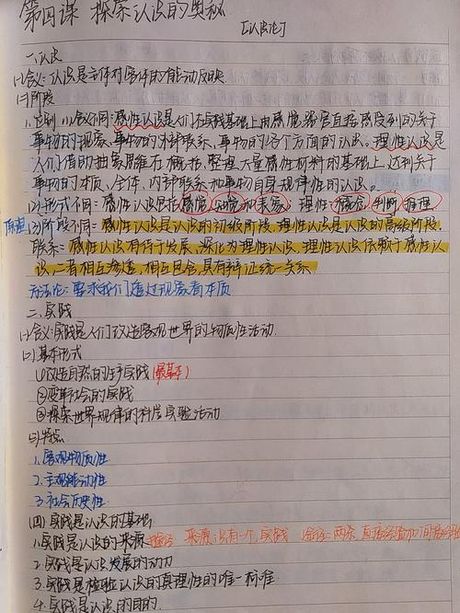 第四课 探索认识的奥秘
【认识论】
一.认识
(一)含义:认识是主体对客体的能动反映
(二)阶段
1.区别:(1)含义不同:感性认识是人们在实践基础上用感觉器官直接感受到的关于
事物的现象、事物的外部联系、事物的各个方面的认识。理性认识是
人们借助抽象思维在概括、整理大量感性材料的基础上,达到关于
事物的本质、全体、内部联系和事物自身规律性的认识。
(2)形式不同:感性认识包括感觉、知觉和表象 理性:概念、判断、推理
(3)阶段不同:感性认识是认识的初级阶段,理性认识是认识的高级阶段。
联系:感性认识有待于发展、深化为理性认识,理性认识依赖于感性认
识,二者相互渗透,相互包含,具有辩证统一关系
方法论:要求我们透过现象看本质
二.实践
(一)含义:实践是人们改造客观世界的物质性活动
(二)基本形式
①改造自然的生产实践(最基本)
②变革社会的实践
③探索世界规律的科学实验活动
(三)特点
1.客观物质性
2.主观能动性
3.社会历史性
(四)实践是认识的基础
1.实践是认识的来源 来源:只有一个,实践 途径:两条,直接经验和间接经验
2.实践是认识发展的动力
3.实践是检验认识的真理性的唯一标准
4.实践是认识的目的